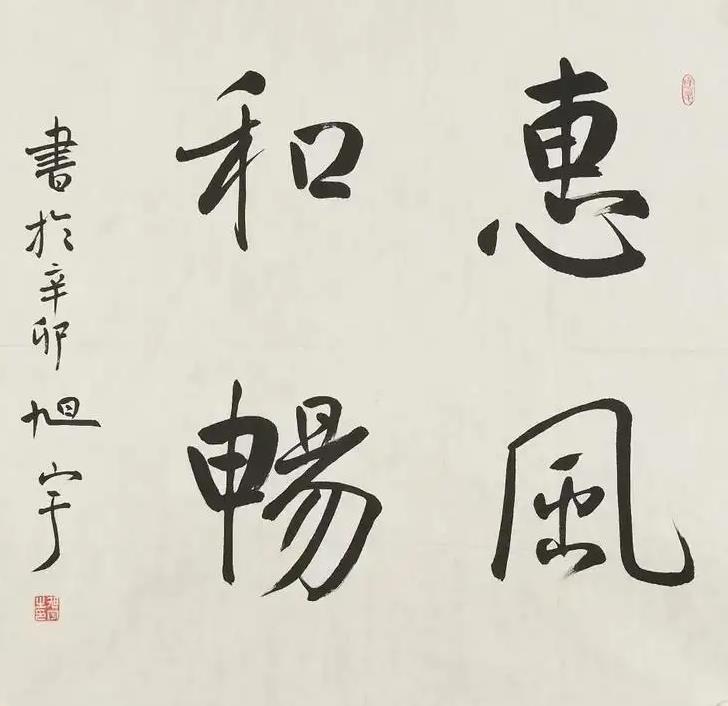 惠風
和暢
書於辛卯旭宇